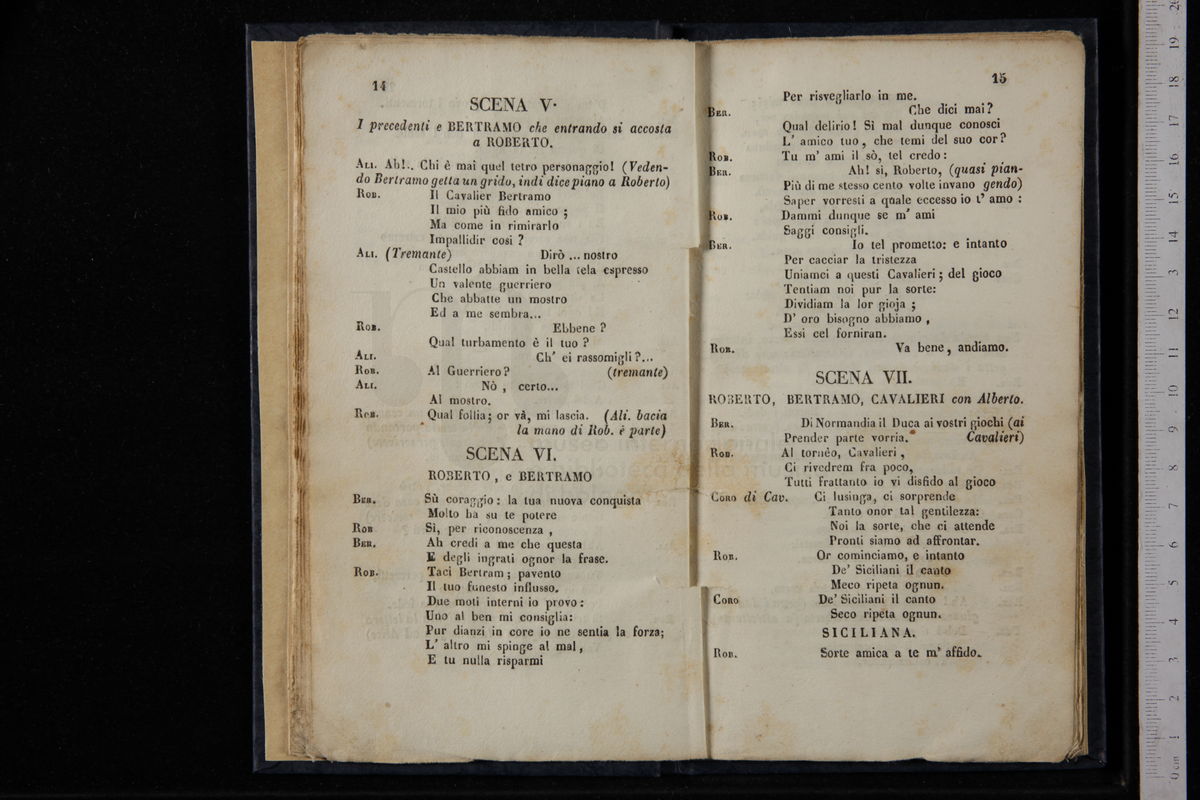 14
SCENA V.
I precedenti e BERTRAMO che entrando si accosta
a ROBERTO.
ALI. Ah!.. Chi è mai quel tetro personaggio! (Veden-
do Bertramo getta un grido, indi dice piano a Roberto)
ROB. Il Cavalier Bertramo
Il mio più fido amico ;
Ma come in rimirarlo
Impallidir così ?
ALI. (Tremante) Dirò ... nostro
Castello abbiam in bella tela espresso
Un valente guerriero
Che abbatte un mostro
Ed a me sembra...
ROB. Ebbene ?
Qual turbamento è il tuo ?
ALI. Ch' ei rassomigli ?...
ROB. Al Guerriero ? (tremante)
ALI. Nò , certo...
Al mostro.
ROB. Qual follia; or và, mi lascia. (Ali. bacia
la mano di Rob. è parte)
SCENA VI.
ROBERTO , e BERTRAMO
BER. Sù coraggio : la tua nuova conquista
Molto ha su te potere
ROB Si, per riconoscenza ,
BER. Ah credi a me che questa
E degli ingrati ognor la frase.
ROB. Taci Bertram ; pavento
Il tuo funesto influsso.
Due moti interni io provo :
Uno al ben mi consiglia:
Pur dianzi in core io ne sentia la forza;
L' altro mi spinge al mal ,
E tu nulla risparmi
15
Per risvegliarlo in me.
BER. Che dici mai ?
Qual delirio ! Sì mal dunque conosci
L' amico tuo , che temi del suo cor ?
ROB. Tu m' ami il sò, tel credo :
BER. Ah! sì, Roberto, (quasi pian-
Più di me stesso cento volte invano gendo)
Saper vorresti a quale eccesso io t' amo :
ROB. Dammi dunque se m' ami
Saggi consigli.
BER. Io tel prometto: e intanto
Per cacciar la tristezza
Uniamci a questi Cavalieri ; del gioco
Tentiam noi pur la sorte:
Dividiam la lor gioja ;
D' oro bisogno abbiamo ,
Essi cel forniran.
ROB. Va bene , andiamo.
SCENA VII.
ROBERTO, BERTRAMO, CAVALIERI con Alberto.
BER. Di Normandia il Duca ai vostri giochi (ai
Prender parte vorria. Cavalieri)
ROB. Al tornèo, Cavalieri ,
Ci rivedrem fra poco,
Tutti frattanto io vi disfido al gioco
CORO di Cav. Ci lusinga, ci sorprende
Tanto onor tal gentilezza:
Noi la sorte, che ci attende
Pronti siamo ad affrontar.
ROB. Or cominciamo, e intanto
De' Siciliani il canto
Meco ripeta ognun.
CORO De' Siciliani il canto
Seco ripeta ognun.
SICILIANA.
ROB. Sorte amica a te m' affido.